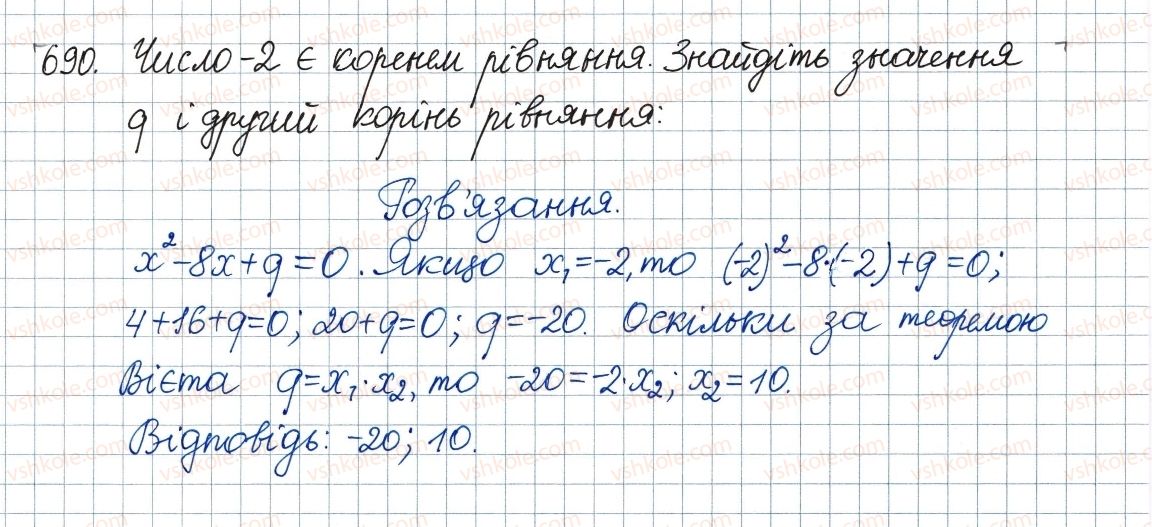 690. Число -2 є коренем рівняння. Знайдіть значення
q і другий корінь рівняння:
Розв'язання.
x²-8x+q=0. Якщо x₁=-2, то (-2)²-8·(-2)+q=0;
4+16+q=0; 20+q=0; q=-20. Оскільки за теоремою
Вієта q=x₁·x₂, то -20=-2·x₂; x₂=10.
Відповідь: -20; 10.